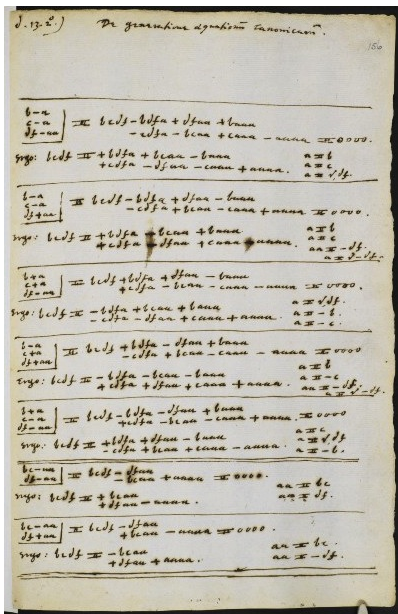 d.13.2°) De generatione æquationum canonicarum.
150
b-a
c-a
df-aa
= bcdf - bdfa + dfaa + baaa
- cdfa - bcaa + caaa - aaaa = 0000.
Ergo: bcdf = + bdfa + bcaa - baaa a = b
+ cdfa - dfaa - caaa + aaaa. a = c
a = √df.
b-a
c-a
df+aa
= bcdf - bdfa + dfaa - baaa
- cdfa + bcaa - caaa + aaaa = 0000.
Ergo: bcdf = + bdfa - bcaa + baaa a = b
+ cdfa - dfaa + caaa - aaaa. a = c
aa = -df.
a = √-df.
b+a
c+a
df-aa
= bcdf + bdfa + dfaa - baaa
+ cdfa - bcaa - caaa - aaaa = 0000.
Ergo: bcdf = - bdfa + bcaa + baaa a = √df.
- cdfa - dfaa + caaa + aaaa. a = -b.
a = -c.
b-a
c+a
df+aa
= bcdf + bdfa - dfaa + baaa
- cdfa + bcaa - caaa - aaaa = 0000
a = b
Ergo: bcdf = - bdfa - bcaa - baaa a = -c
+ cdfa + dfaa + caaa + aaaa. aa = -df.
a = √-df.
b+a
c-a
df-aa
= bcdf - bdfa - dfaa + baaa
+ cdfa - bcaa - caaa + aaaa. = 0000
a = c
Ergo: bcdf = + bdfa + dfaa - baaa a = √df
- cdfa + bcaa + caaa - aaaa. a = -b.
bc-aa
df-aa
= bcdf - dfaa
- bcaa + aaaa = 0000.
aa = bc
Ergo: bcdf = + bcaa aa = df.
+ dfaa - aaaa.
bc-aa
df+aa
= bcdf - dfaa
+ bcaa - aaaa = 0000.
aa = bc.
Ergo: bcdf = - bcaa aa = -df.
+ dfaa + aaaa.